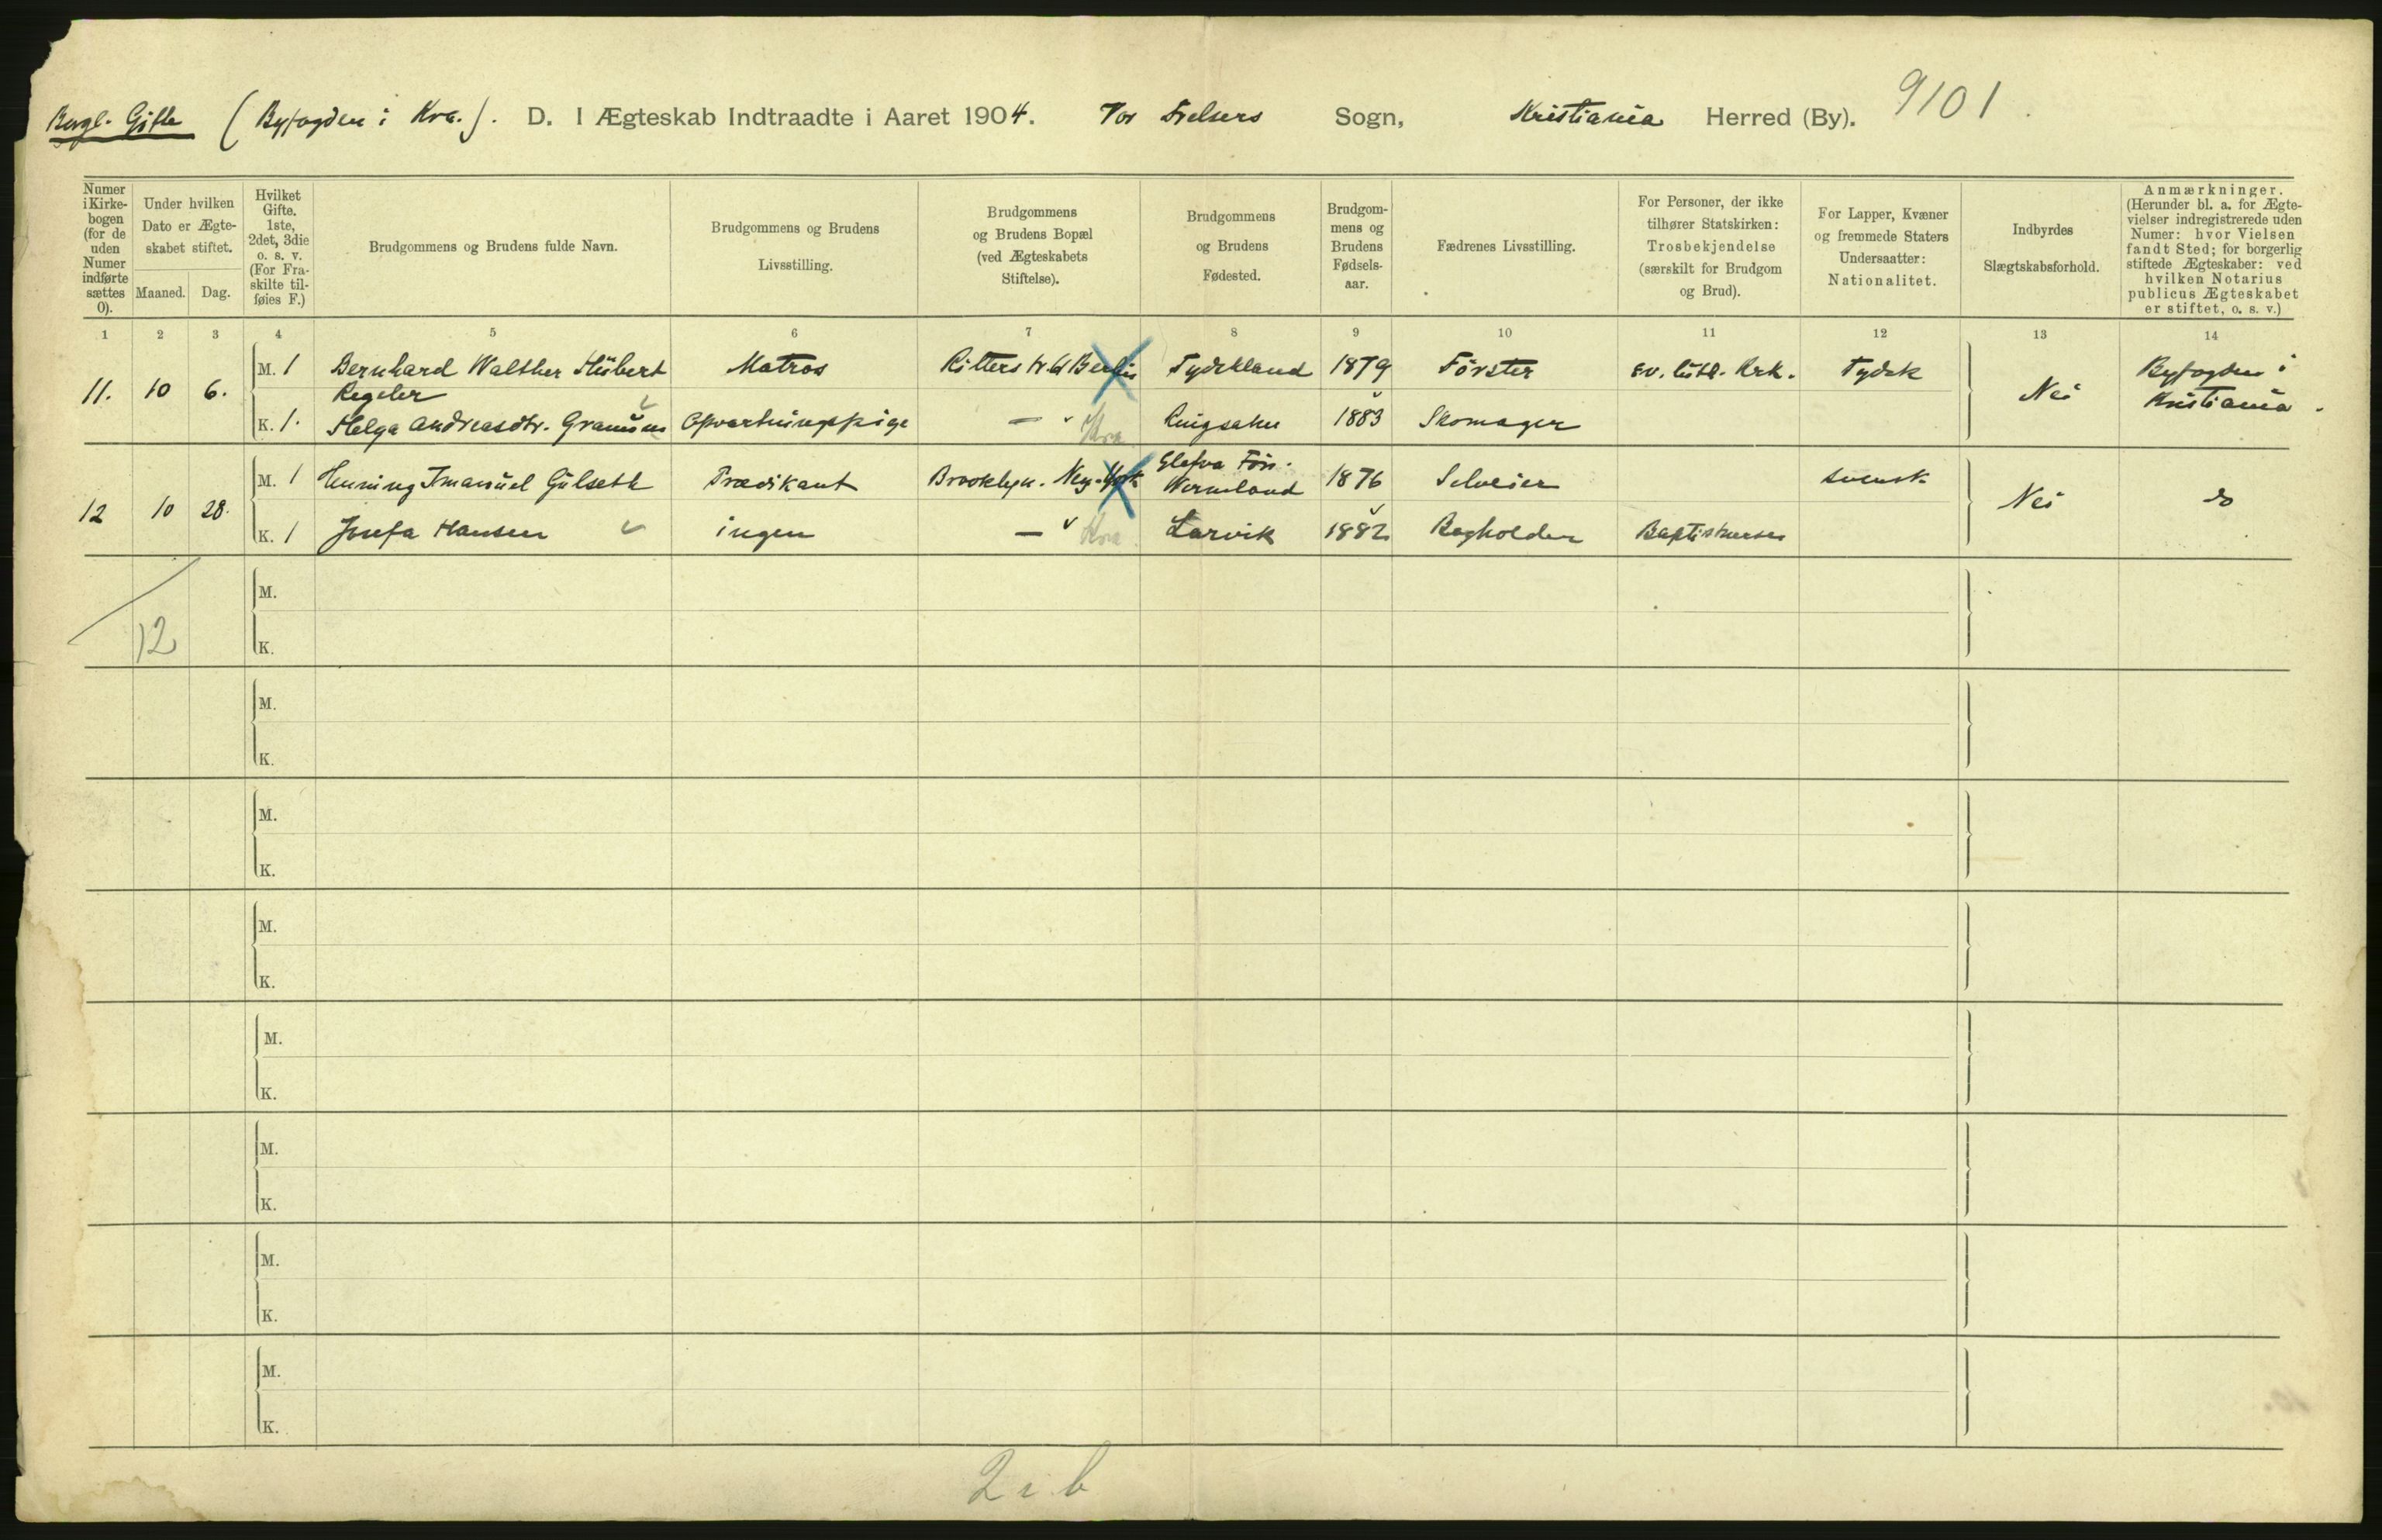 Borgl. Gifte (Byfogden i Kra.). D. I Ægteskab Indtraadte i Aaret 1904. Vor Frelsers Sogn, Kristiania Herred (By). 9101
Numer i Kirke-bogen (for de uden Numer indførte sættes 0).
Under hvilken Dato er Ægte-skabet stiftet.
Maaned. Dag.
Hvilket Gifte. 1ste, 2det, 3die o. s. v. (For Fra-skilte til-føies F.)
Brudgommens og Brudens fulde Navn.
Brudgommens og Brudens Livsstilling.
Brudgommens og Brudens Bopæl (ved Ægteskabets Stiftelse).
Brudgommens og Brudens Fødested.
Brudgom-mens og Brudens Fødsels-aar.
Fædrenes Livsstilling.
For Personer, der ikke tilhører Statskirken: Trosbekjendelse (særskilt for Brudgom og Brud).
For Lapper, Kvæner og fremmede Staters Undersaatter: Nationalitet.
Indbyrdes Slægtskabsforhold.
Anmærkninger. (Herunder bl. a. for Ægte-vielser indregistrerede uden Numer: hvor Vielsen fandt Sted; for borgerlig stiftede Ægteskaber: ved hvilken Notarius publicus Ægteskabet er stiftet, o. s. v.)
1 2 3 4 5 6 7 8 9 10 11 12 13 14
11. 10 6. M. 1 Bernhard Walther Hübert Regeler Matros Ritterstr 61 Berlin Tydskland 1879 Förster Ev. luth. Krk. Tydsk Nei Byfogden i Kristiania.
K. 1. Helga Andreasdtr. Granum Opvartningspige — Kra Ringsaker 1883 Skomager
12 10 28. M. 1 Henning Imanuel Gulseth Prædikant Brooklyn. New-York Glafva Förs. Wermland 1876 Selveier svensk Nei do
K. 1 Josefa Hansen ingen — Kra. Larvik 1882 Bogholder Baptisternes
M.
12 K.
M.
K.
M.
K.
M.
K.
M.
K.
M.
K.
M.
K.
M.
K.
2 i b